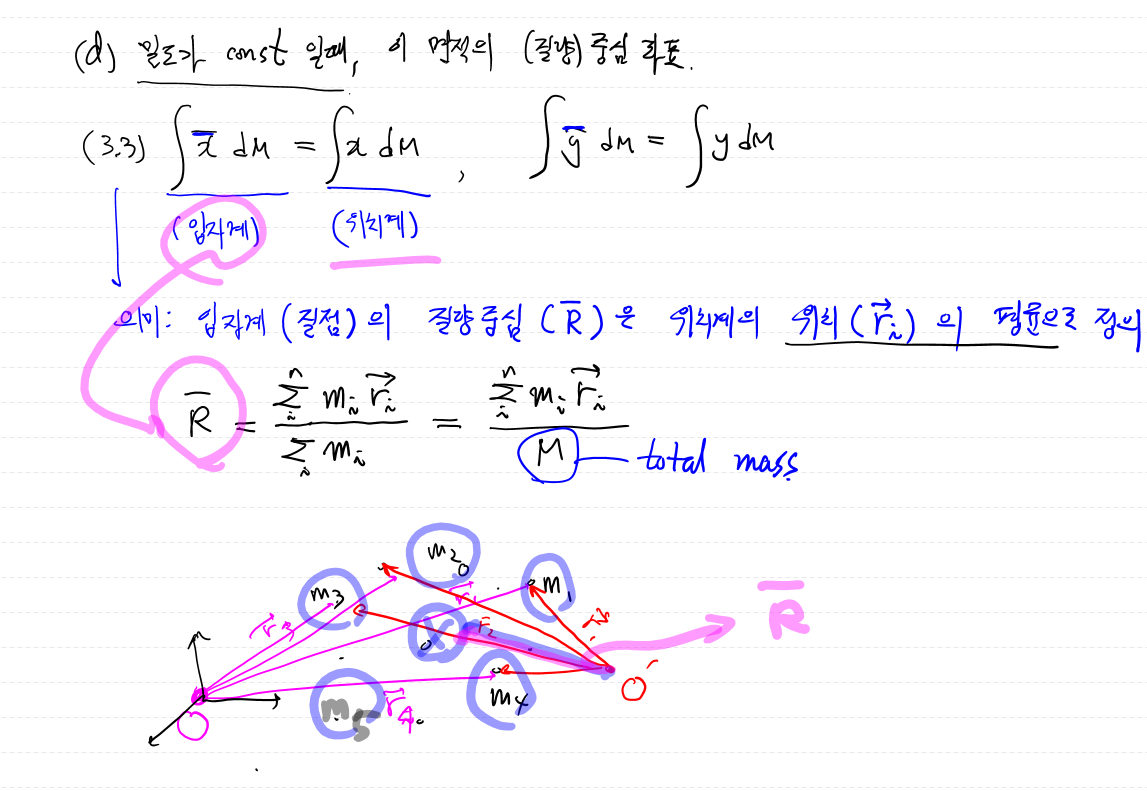 (d) 밀도가 const 일때, 이 면적의 (질량)중심 좌표.
(3.3) ∫ x̄ dM = ∫ x dM , ∫ ȳ dM = ∫ y dM
(입자계) (위치계)
의미: 입자계 (질점) 의 질량중심 (R̄) 은 위치계의 위치 (r⃗ᵢ) 의 평균으로 정의
R̄ = ∑ᵢⁿ mᵢ r⃗ᵢ / ∑ᵢ mᵢ = ∑ᵢⁿ mᵢ r⃗ᵢ / M total mass
m₂
m₃ r⃗₁ m₁
r⃗₃ X r₂ R̄
O m₅ r⃗₄ m₄ O′